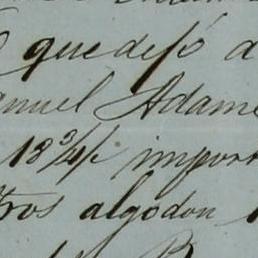 que dejó a
anuel Adame
18 3/4 import
tros algodon